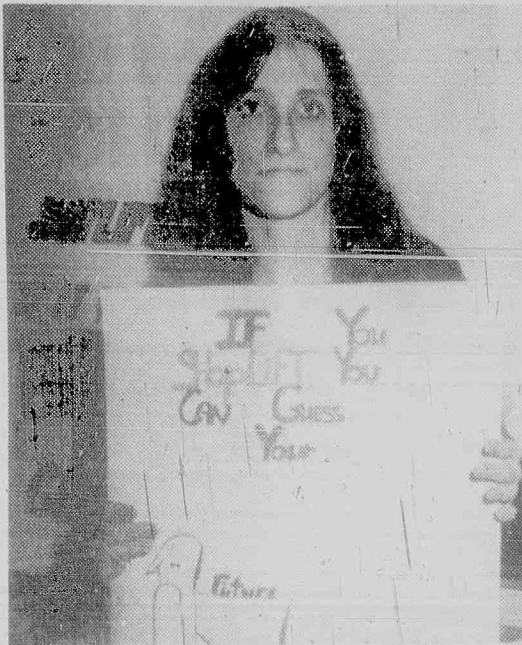 IF You
ShopLIFT You
CAN Guess
Your
Future